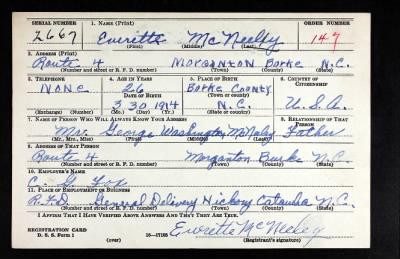 SERIAL NUMBER 1. NAME (Print) ORDER NUMBER
2667 Everette McNeeley 147
(First) (Middle) (Last)
2. ADDRESS (Print)
Route 4 Morganton Borke N.C.
(Number and street or R. F. D. number) (Town) (County) (State)
3. TELEPHONE 4. AGE IN YEARS 5. PLACE OF BIRTH 6. COUNTRY OF CITIZENSHIP
None 26 Borke County
DATE OF BIRTH (Town or county)
3 30 1914 N.C. U.S.A.
(Exchange) (Number) (Mo.) (Day) (Yr.) (State or country)
7. NAME OF PERSON WHO WILL ALWAYS KNOW YOUR ADDRESS 8. RELATIONSHIP OF THAT PERSON
Mr. George Washington McNeley Father
(Mr., Mrs., Miss) (First) (Middle) (Last)
9. ADDRESS OF THAT PERSON
Route 4 Morganton Burke N.C.
(Number and street or R. F. D. number) (Town) (County) (State)
10. EMPLOYER'S NAME
C. G. Fox
11. PLACE OF EMPLOYMENT OR BUSINESS
R.F.D. General Delivery Hickory Catawba N.C.
(Number and street or R. F. D. number) (Town) (County) (State)
I AFFIRM THAT I HAVE VERIFIED ABOVE ANSWERS AND THAT THEY ARE TRUE.
REGISTRATION CARD
D. S. S. Form 1 16—17105 Everette McNeeley
(over) (Registrant's signature)